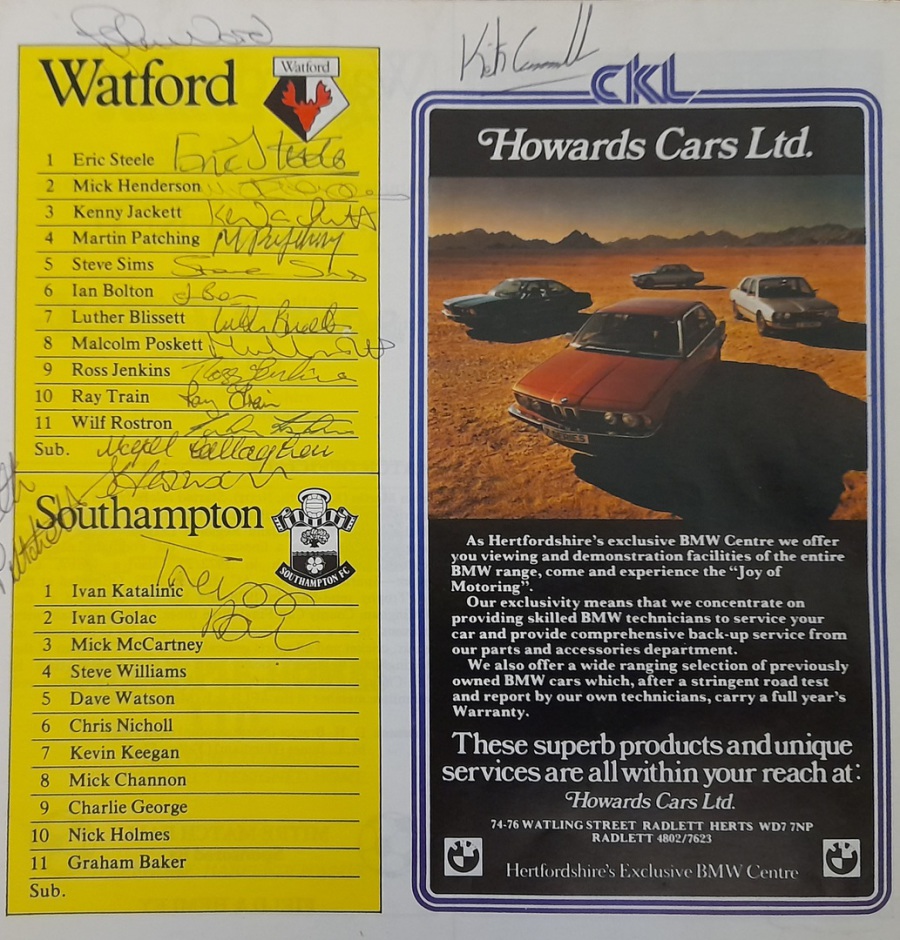 Watford
Watford
1 Eric Steele Eric Steele
2 Mick Henderson
3 Kenny Jackett Ken Jackett
4 Martin Patching M Patching
5 Steve Sims Steve Sims
6 Ian Bolton
7 Luther Blissett Luther Blissett
8 Malcolm Poskett
9 Ross Jenkins Ross Jenkins
10 Ray Train Ray Train
11 Wilf Rostron
Sub.
Southampton
SOUTHAMPTON FC
1 Ivan Katalinic
2 Ivan Golac
3 Mick McCartney
4 Steve Williams
5 Dave Watson
6 Chris Nicholl
7 Kevin Keegan
8 Mick Channon
9 Charlie George
10 Nick Holmes
11 Graham Baker
Sub.
CKL
Howards Cars Ltd.
As Hertfordshire's exclusive BMW Centre we offer
you viewing and demonstration facilities of the entire
BMW range, come and experience the "Joy of
Motoring".
Our exclusivity means that we concentrate on
providing skilled BMW technicians to service your
car and provide comprehensive back-up service from
our parts and accessories department.
We also offer a wide ranging selection of previously
owned BMW cars which, after a stringent road test
and report by our own technicians, carry a full year's
Warranty.
These superb products and unique
services are all within your reach at:
Howards Cars Ltd.
74-76 WATLING STREET RADLETT HERTS WD7 7NP
RADLETT 4802/7623
Hertfordshire's Exclusive BMW Centre